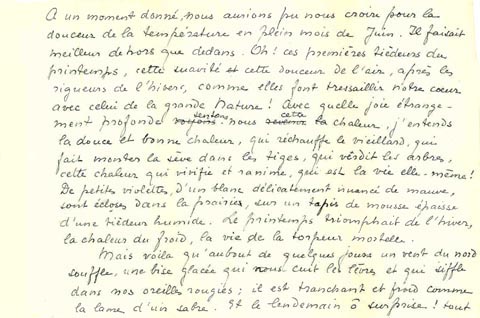 A un moment donné, nous aurions pu nous croire pour la
douceur de la température en plein mois de Juin. Il faisait
meilleur dehors que dedans. Oh! ces premières tiédeurs du
printemps, cette suavité et cette douceur de l'air, après les
rigueurs de l'hiver, comme elles font tressaillir notre cœur
avec celui de la grande Nature! Avec quelle joie étrange-
ment profonde voyons sentons-nous revenir la cette chaleur, j'entends
la douce et bonne chaleur, qui réchauffe le vieillard, qui
fait monter la sève dans les tiges, qui verdit les arbres,
cette chaleur qui vivifie et ranime, qui est la vie elle-même!
De petites violettes, d'un blanc délicatement nuancé de mauve,
sont écloses dans la prairie, sur un tapis de mousse épaisse
d'une tiédeur humide. Le printemps triomphait de l'hiver,
la chaleur du froid, la vie de la torpeur mortelle.
Mais voilà qu'au bout de quelques jours un vent du nord
souffle, une bise glacée qui nous cuit les lèvres et qui siffle
dans nos oreilles rougies; il est tranchant et froid comme
la lame d'un sabre. Et le lendemain ô surprise! tout